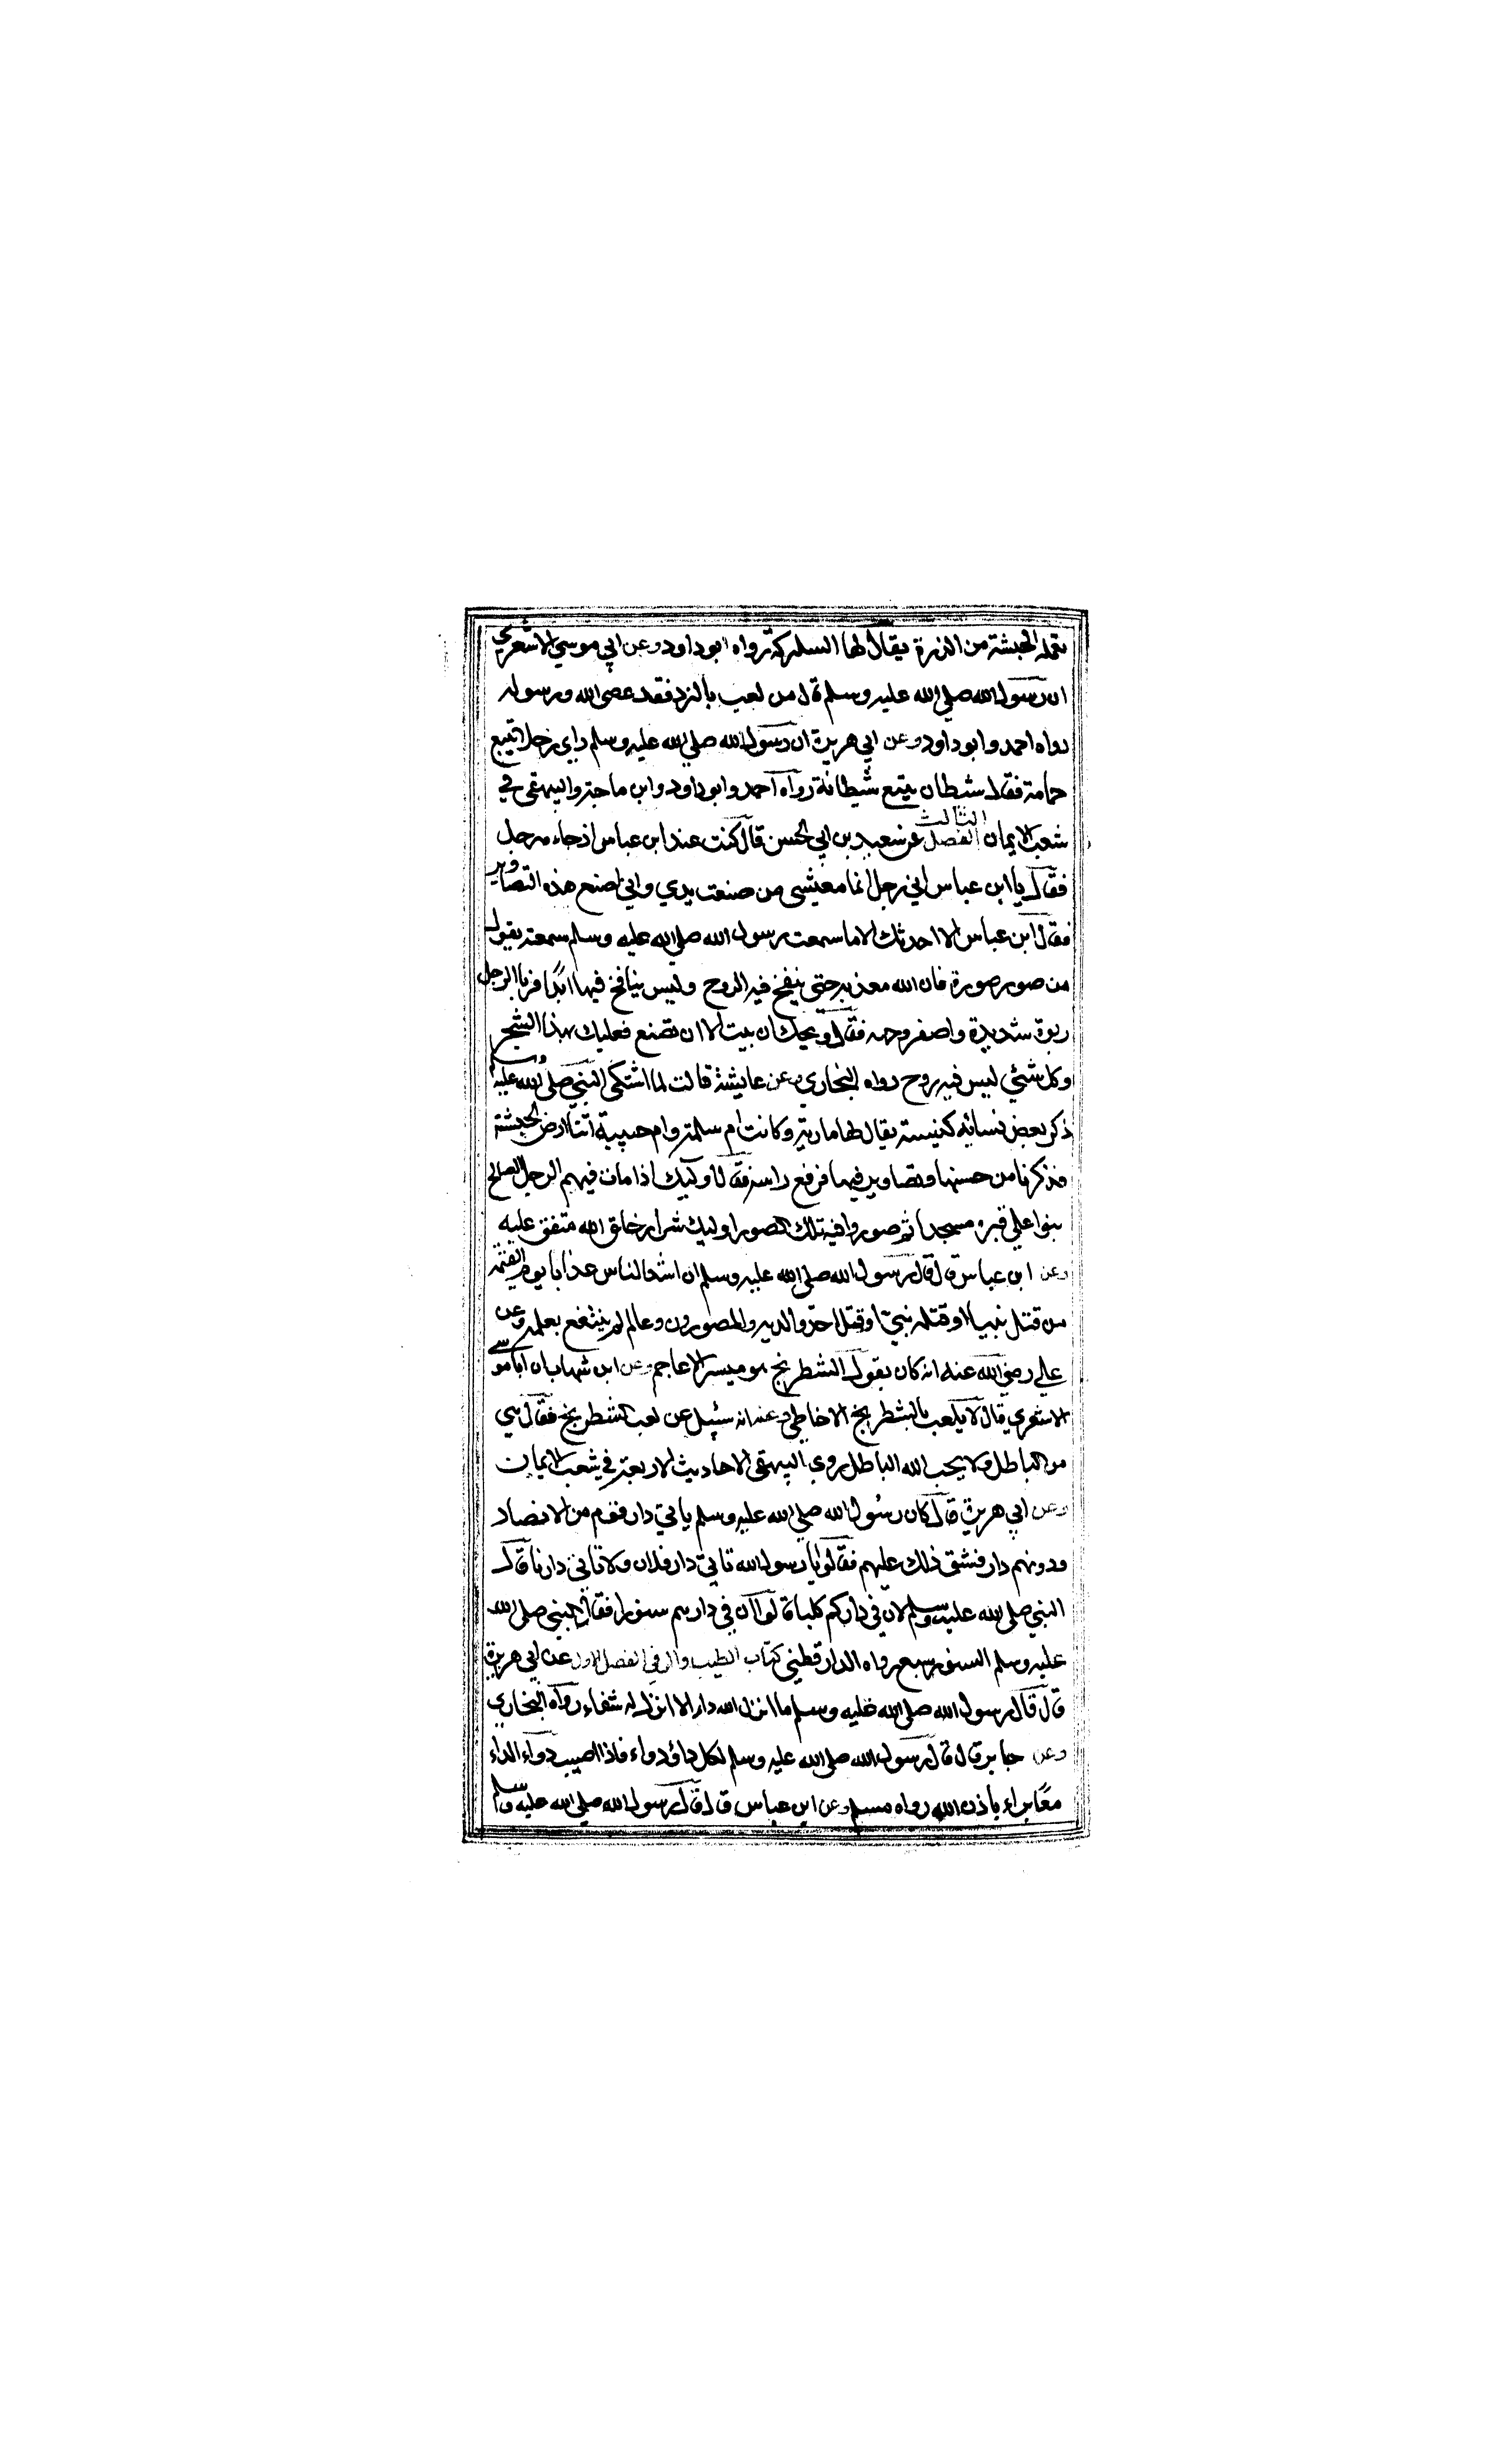 تعمله الحبشة من الذرة يقال لها السكركة رواه ابوداود وعن ابي موسي الاشعري
ان رسول الله صلي الله عليه وسلم قال من لعب بالنرد فقد عصي الله ورسوله
رواه احمد وابوداود وعن ابي هريرة ان رسول الله صلي الله عليه وسلم راي رجلا يتبع
حمامة فقال شيطان يتبع شيطانة رواه احمد وابوداود وابن ماجة والبيهقي في
شعب الايمان الفصل الثالث عن سعيد بن ابي الحسن قال كنت عند ابن عباس اذ جاءه رجل
فقال يا ابن عباس اني رجل انما معيشتي من صنعت يدي واني اصنع هذه التصاوير
فقال ابن عباس لا احدثك الا ما سمعت رسول الله صلي الله عليه وسلم سمعته يقول
من صور صورة فان الله معذبه حتي ينفخ فيه الروح وليس بنافخ فيها ابدا فربا الرجل
ربوة شديدة واصفر وجهه فقال ويحك ان بيت الا ان تصنع فعليك بهذا الشجر
وكل شئي ليس فيه روح رواه البخاري وعن عايشة قالت لما اشتكي النبي صلي الله عليه وسلم
ذكر بعض نسائه كنيسة يقال لها مارية وكانت ام سلمة وام حبيبة اتتا ارض الحبشة
فذكرتا من حسنها وتصاوير فيها فرفع راسه فقال اوليك اذا مات فيهم الرجل الصالح
بنوا علي قبره مسجدا ثم صوروا فيه تلك الصور اوليك شرار خلق الله متفق عليه
وعن ابن عباس قال قال رسول الله صلي الله عليه وسلم ان اشد الناس عذابا يوم القيمة
من قتل نبيا او قتله نبي او قتل احد والديه والمصورون وعالم لم ينتفع بعلمه وعن
علي رضي الله عنه انه كان يقول الشطرنج هو ميسر الاعاجم وعن ابن شهاب ان ابا موسي
الاشعري قال لا يلعب بالشطرنج الا خاطي وعنه انه سئيل عن لعب الشطرنج فقال هي
من الباطل ولا يحب الله الباطل روي البيهقي الاحاديث الاربعة في شعب الايمان
وعن ابي هريرة قال كان رسول الله صلي الله عليه وسلم ياتي دار قوم من الانصار
ودونهم دار فشق ذلك عليهم فقالوا يا رسول الله تاتي دار فلان ولا تاتي دارنا قال
النبي صلي الله عليه وسلم لان في داركم كلبا قالوا ان في دارهم سنورا فقال النبي صلي الله
عليه وسلم السنور سبع رواه الدارقطني كتاب الطب والرقي الفصل الاول عن ابي هريرة
قال قال رسول الله صلي الله عليه وسلم ما انزل الله داء الا انزل له شفاء رواه البخاري
وعن جابر قال قال رسول الله صلي الله عليه وسلم لكل داؤ دواء فاذا اصيب دواء الداء
معا براء باذن الله رواه مسلم وعن ابن عباس قال قال رسول الله صلي الله عليه وسلم